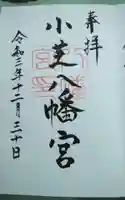 奉拝
小芝八幡宮
令和三年十二月三十日